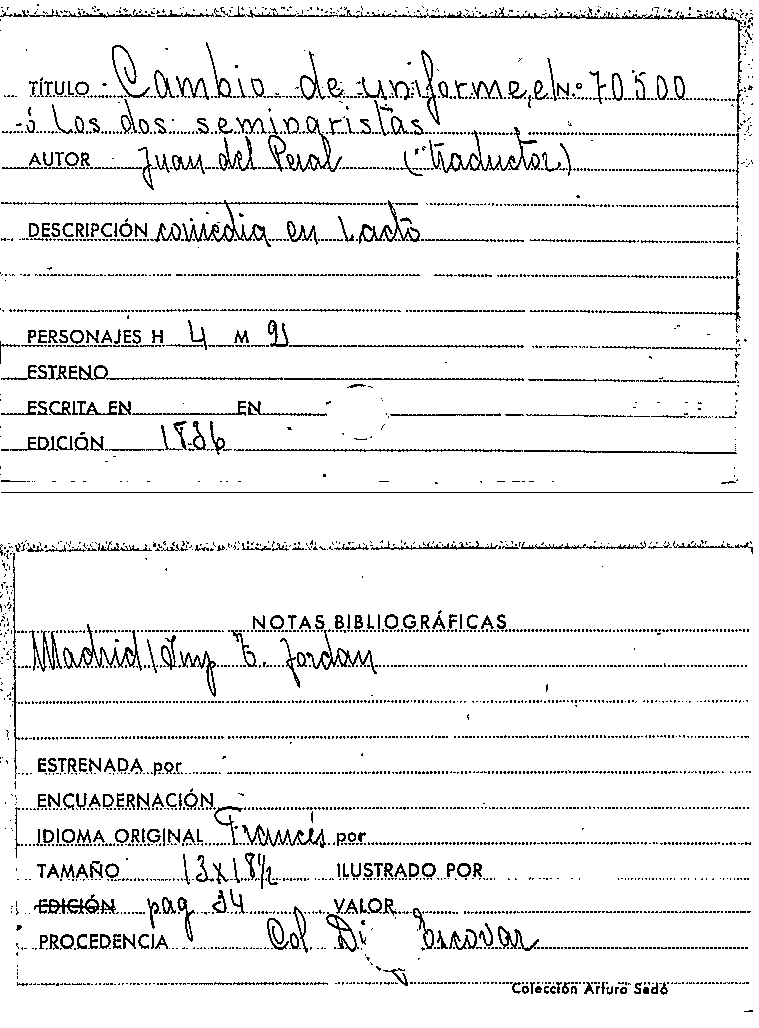 TÍTULO Cambio de uniforme, el N.º 70500
ó los dos seminaristas
AUTOR Juan del Peral (traductor)
DESCRIPCIÓN comedia en 1 acto
PERSONAJES H 4 M
ESTRENO
ESCRITA EN EN
EDICIÓN
NOTAS BIBLIOGRÁFICAS
Madrid / Imp T. Jordan
ESTRENADA por
ENCUADERNACIÓN
IDIOMA ORIGINAL Francés por
TAMAÑO 13 x 18½ ILUSTRADO POR
EDICIÓN pag 34 VALOR
PROCEDENCIA Col. Escovar
Colección Arturo Sedó